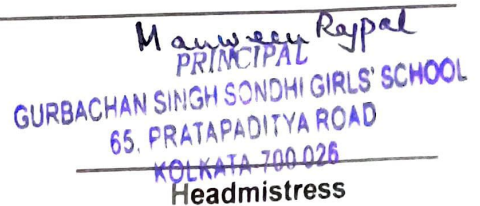 Manween Rajpal
PRINCIPAL
GURBACHAN SINGH SONDHI GIRLS' SCHOOL
65, PRATAPADITYA ROAD
KOLKATA-700 026
Headmistress